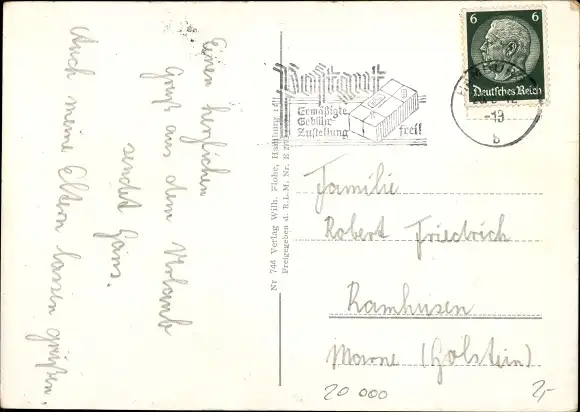 Einen herzlichen
Gruß aus dem Urlaub
sendet Hans.
Auch meine Eltern lassen grüßen.
Nr 744 Verlag Wilh. Flohe, Hamburg
Freigegeben d. R.L.M. Nr. E
Postgut
Ermäßigte
Gebühr
Zustellung frei!
6 6
Deutsches Reich
-19
b
Familie
Robert Friedrich
Ramhusen
Marne (Holstein)
20 000
2,-